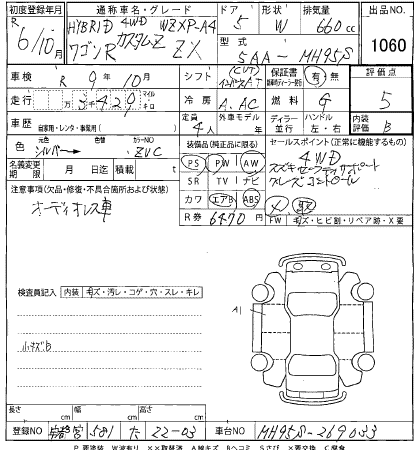 初度登録年月 通称車名・グレード ドア 形状 排気量 出品NO.
R 6/10月 HYBRID 4WD WZXP-A4 5 W 660cc 1060
ワゴンR カスタムZ ZX 型式 5AA-MH95S
車検 R 9年 10月 シフト 保証書 有 無 評価点
走行 万 5千429 マイル キロ 冷房 A.AC 燃料 G 5
車歴 自家用・レンタ・事業用( ) 定員 4人 外車モデル 年 ディーラー 並行 ハンドル 左・右 内装評価 B
色 元色 シルバー → 色替 カラーNO ZVC 装備品(純正品に限る) セールスポイント(正常に機能するもの)
名義変更期限 月 日 積載 t PS PW AW 4WD
注意事項(欠品・修復・不具合箇所および状態) SR TV ナビ スズキセーフティサポート
オーディオレス車 カワ エアB ABS クルーズコントロール
R券 6470円 FW キズ・ヒビ割・リペア跡・X要
検査員記入 内装 キズ・汚レ・コゲ・穴・スレ・キレ
A1
小キズB
長さ cm 巾 cm 高さ cm
登録NO 宇都宮 581 た 22-03 車台NO MH95S-269033
P要塗装 W波有り XX取替済 A線キズ Bヘコミ Sさび X要交換 C腐食